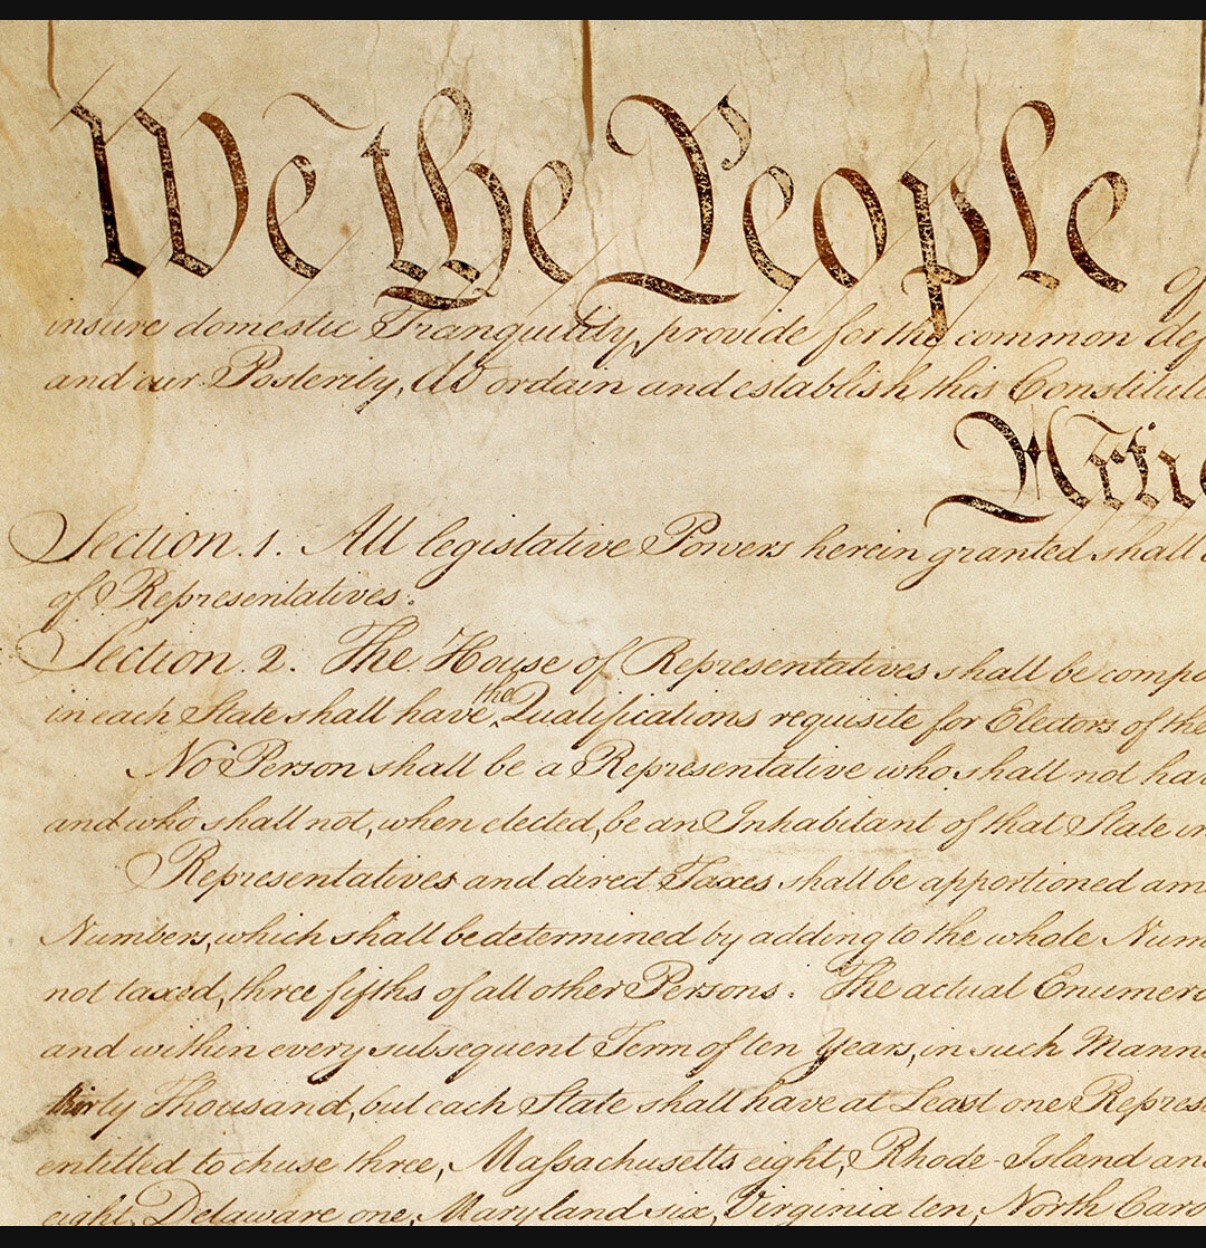 We the People of
insure domestic Tranquility, provide for the common def
and our Posterity, do ordain and establish this Constituti
Artic
Section. 1. All legislative Powers herein granted shall
of Representatives.
Section. 2. The House of Representatives shall be compo
the
in each State shall have ^ Qualifications requisite for Electors of the
No Person shall be a Representative who shall not ha
and who shall not, when elected, be an Inhabitant of that State in
Representatives and direct Taxes shall be apportioned am
Numbers, which shall be determined by adding to the whole Num
not taxed, three fifths of all other Persons. The actual Enumera
and within every subsequent Term of ten Years, in such Mann
thirty Thousand, but each State shall have at Least one Repres
entitled to chuse three, Massachusetts eight, Rhode-Island an
eight, Delaware one, Maryland six, Virginia ten, North Caro